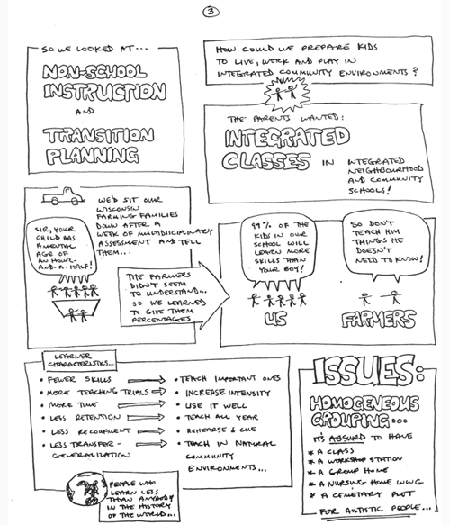 3
SO WE LOOKED AT...
NON-SCHOOL
INSTRUCTION
AND
TRANSITION
PLANNING
HOW COULD WE PREPARE KIDS
TO LIVE, WORK AND PLAY IN
INTEGRATED COMMUNITY ENVIRONMENTS?
THE PARENTS WANTED:
INTEGRATED
CLASSES IN INTEGRATED
NEIGHBOURHOOD
AND COMMUNITY
SCHOOLS!
WE'D SIT OUR
WISCONSIN
FARMING FAMILIES
DOWN AFTER A
WEEK OF MULTIDISCIPLINARY
ASSESSMENT AND TELL
THEM...
SIR, YOUR
CHILD HAS
A MENTAL
AGE OF
AN HOUR-
AND-A-HALF!
THE FARMERS
DIDN'T SEEM
TO UNDERSTAND...
SO WE LEARNED
TO GIVE THEM
PERCENTAGES
99% OF THE
KIDS IN OUR
SCHOOL WILL
LEARN MORE
SKILLS THAN
YOUR BOY!
US
SO DON'T
TEACH HIM
THINGS HE
DOESN'T
NEED TO KNOW!
FARMERS
LEARNER
CHARACTERISTICS...
• FEWER SKILLS → • TEACH IMPORTANT ONES
• MORE TEACHING TRIALS → • INCREASE INTENSITY
• MORE TIME → • USE IT WELL
• LESS RETENTION → • TEACH ALL YEAR
• LESS RECOUPMENT → • REHEARSE & CUE
• LESS TRANSFER - → • TEACH IN NATURAL
GENERALIZATION
COMMUNITY
ENVIRONMENTS...
PEOPLE WHO
LEARN LESS
THAN ANYBODY
IN THE HISTORY
OF THE WORLD...
ISSUES:
HOMOGENEOUS
GROUPING...
IT'S ABSURD TO HAVE
* A CLASS
* A WORKSHOP STATION
* A GROUP HOME
* A NURSING HOME WING
* A CEMETARY PLOT
FOR ARTISTIC PEOPLE...